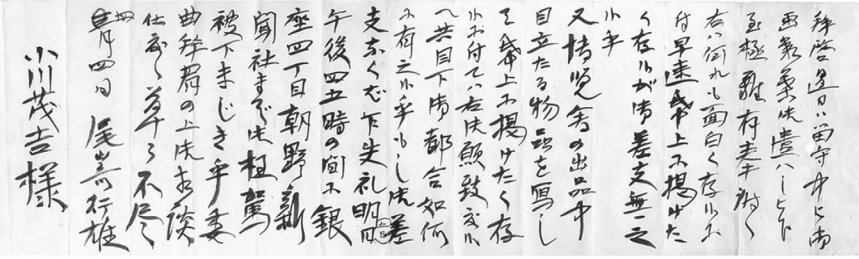 拝啓過日ハ留守中に御
画数葉御遣ハし被下
至極難有奉謝候
右ハ何れも面白く存候に
付早速紙上に掲けた
く存候が御差支無之
候乎
又博覧会の出品中
目立たる物品を写し
て紙上に掲けたく存
候に付てハ右御願致度候
へ共目下御都合如何
に有之候乎もし御差
支なくば乍失礼明日
午後四五時の間に銀
座四丁目朝野新
聞社まで御枉駕
被下まじき乎委
曲拝眉の上御相談
仕度候草々不尽
月四日 尾崎行雄
小川茂吉様